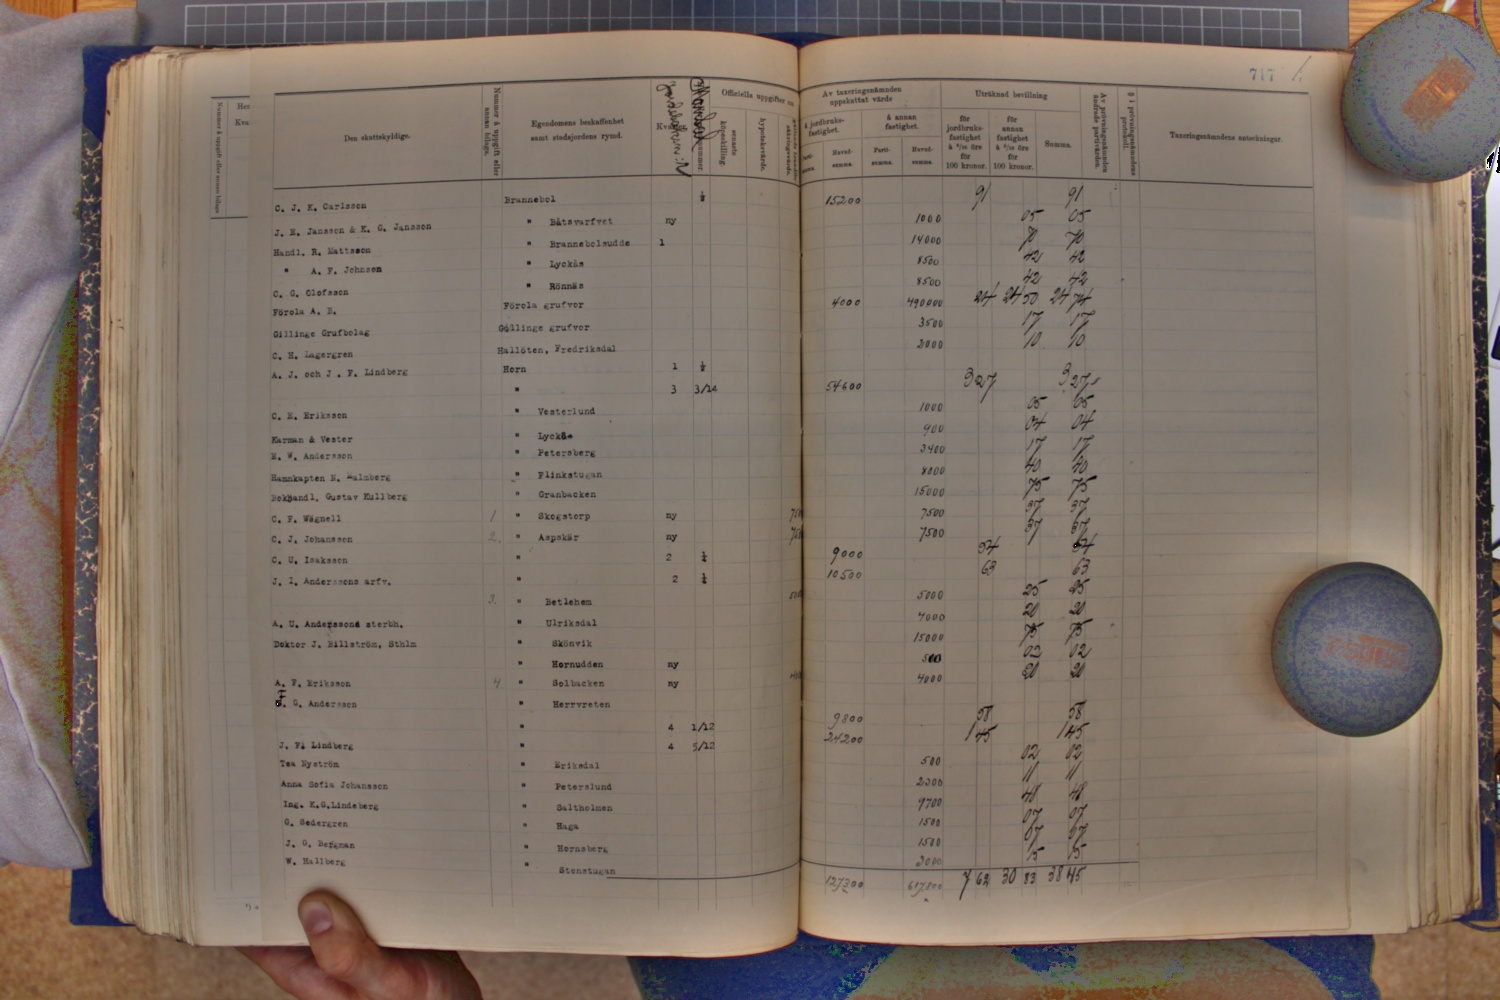 717
Nummer å uppgift eller annan bilaga.
Den skattskyldige.
Nummer å uppgift eller annan bilaga.
Egendomens beskaffenhet samt stadsjordens rymd.
Officiella uppgifter om
senaste köpeskilling.
hypoteksvärde.
Av taxeringsnämnden uppskattat värde
å jordbruksfastighet.
å annan fastighet.
Huvudsumma.
Partisumma.
Huvudsumma.
Uträknad bevillning
för jordbruksfastighet å 6/10 öre för 100 kronor.
för annan fastighet å 5/10 öre för 100 kronor.
Summa.
Av prövningsnämnden ändrade partivärden.
§ i prövningsnämndens protokoll.
Taxeringsnämndens anteckningar.
C. J. K. Carlsson Brannebol ½ 15200 91 91
J. E. Jansson & K. G. Jansson " Båtsvarfvet ny 1000 05 05
Handl. R. Mattsson " Brannebolsudde 1 14000 70 70
" A. F. Johnson " Lyckås 8500 42 42
C. G. Olofsson " Rönnäs 8500 42 42
Förola A. B. Förola grufvor 4000 490000 24 24 50 24 74
Gillinge Grufbolag Gillinge grufvor 3500 17 17
C. H. Lagergren Hallöten, Fredriksdal 2000 10 10
A. J. och J. F. Lindberg Horn 1 ½
" 3 3/14 54600 3 27 3 27
C. E. Eriksson " Vesterlund 1000 05 05
Karman & Vester " Lyckås 900 04 04
E. W. Andersson " Petersberg 3400 17 17
Hamnkapten N. Malmberg " Flinkstugan 8000 40 40
Bokhandl. Gustav Kullberg " Granbacken 15000 75 75
C. F. Wågnell 1 " Skogstorp ny 7500 37 37
C. J. Johansson 2. " Aspskär ny 7500 37 37
C. U. Isaksson " 2 ¼ 9000 54 54
J. I. Anderssons arfv. " 2 ¼ 10500 63 63
3. " Betlehem 5000 25 25
A. U. Anderssons sterbh. " Ulriksdal 4000 20 20
Doktor J. Billström, Sthlm " Skönvik 15000 75 75
" Hornudden ny 500 02 02
A. F. Eriksson 4 " Solbacken ny 4000 20 20
F. G. Andersson " Herrvreten
" 4 1/12 9800 58 58
J. F. Lindberg " 4 5/12 24200 1 45 1 45
Tea Nyström " Eriksdal 500 02 02
Anna Sofia Johansson " Peterslund 2300 11 11
Ing. K.G.Lindeberg " Saltholmen 9700 48 48
G. Sedergren " Haga 1500 07 07
J. G. Bergman " Hornsberg 1500 07 07
W. Hallberg " Stenstugan 3000 15 15
127300 617800 7 62 30 83 38 45